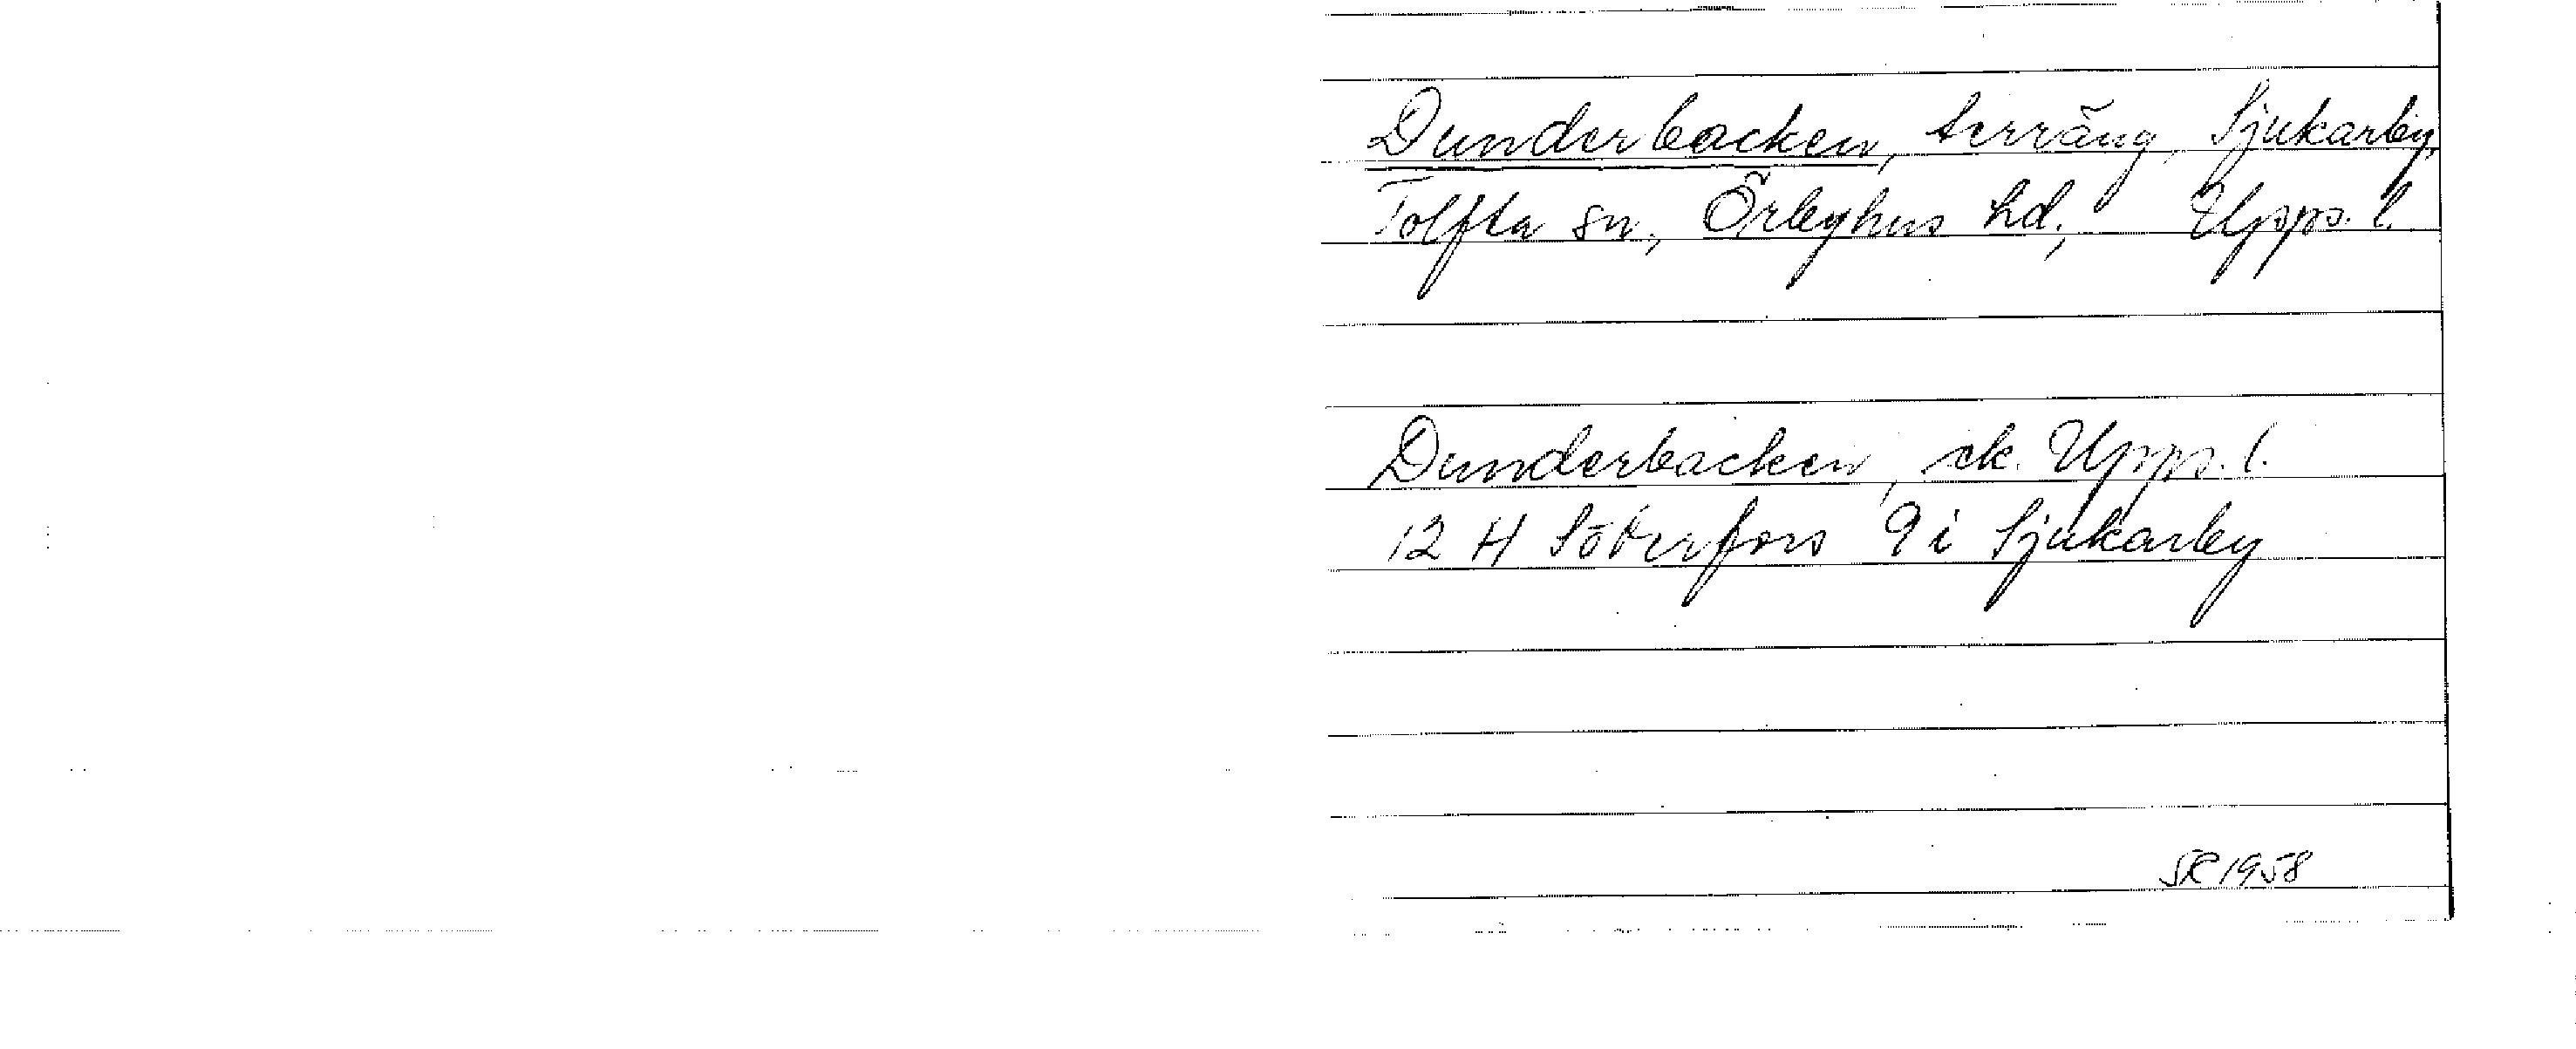 Dunderbacken, terräng, Sjukarby,
Tolfta sn., Örbyhus hd., Upps. l.
Dunderbacken, ek. Upps. l.
12 H Söderfors 9 i Sjukarby
SR 1958